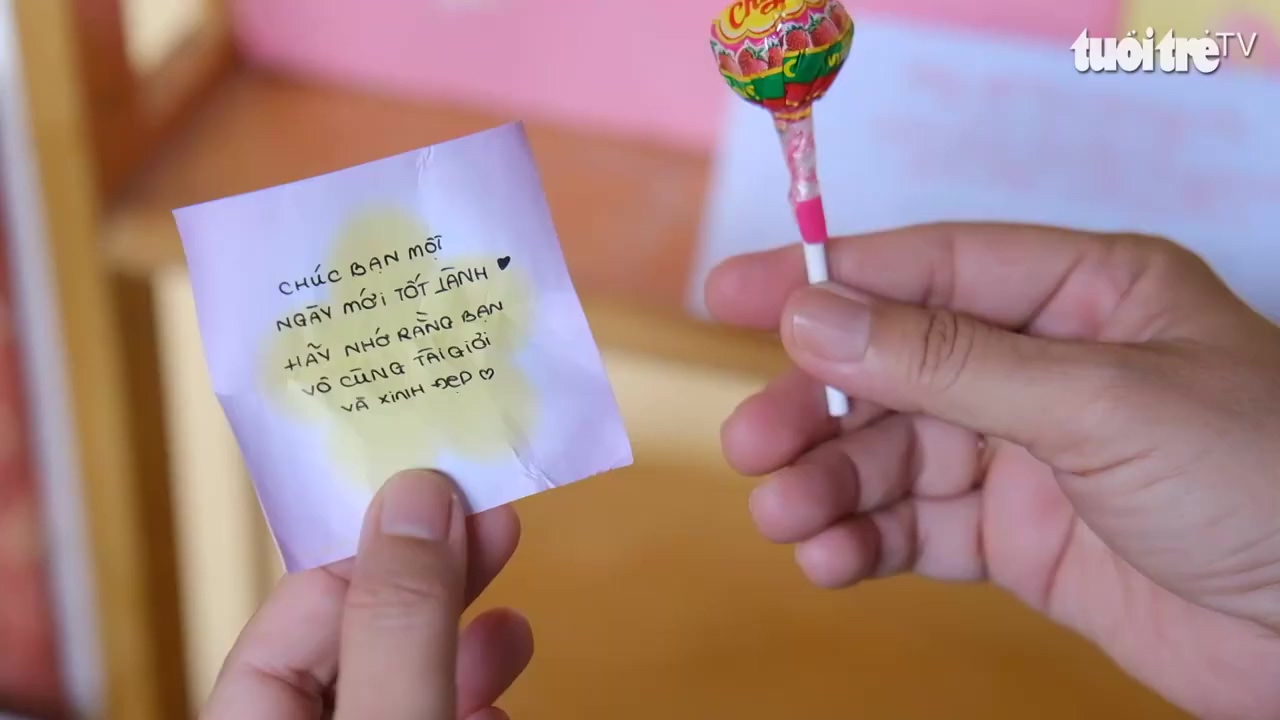 tuổi trẻ TV
CHÚC BẠN MỘT
NGÀY MỚI TỐT LÀNH ♥
HÃY NHỚ RẰNG BẠN
VÔ CÙNG TÀI GIỎI
VÀ XINH ĐẸP ♡